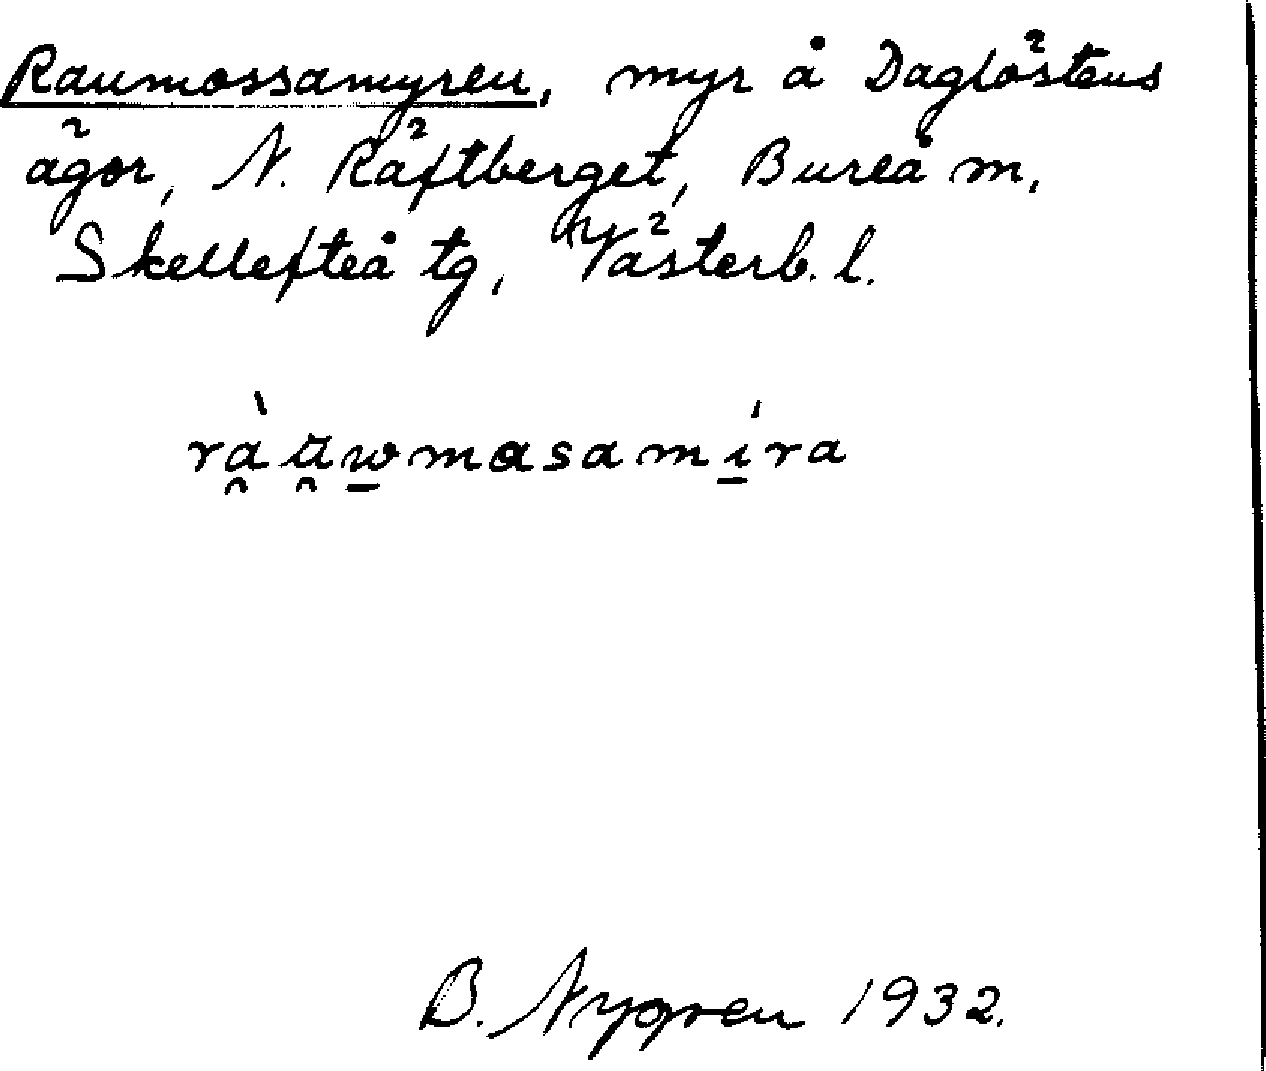 Raumossamyren, myr å Daglöstens
ägor, N. Räftberget, Bureå m,
Skellefteå tg, Västerb. l.
rà̯u̯w̲mɑsamí̲ra
B. Nygren 1932.